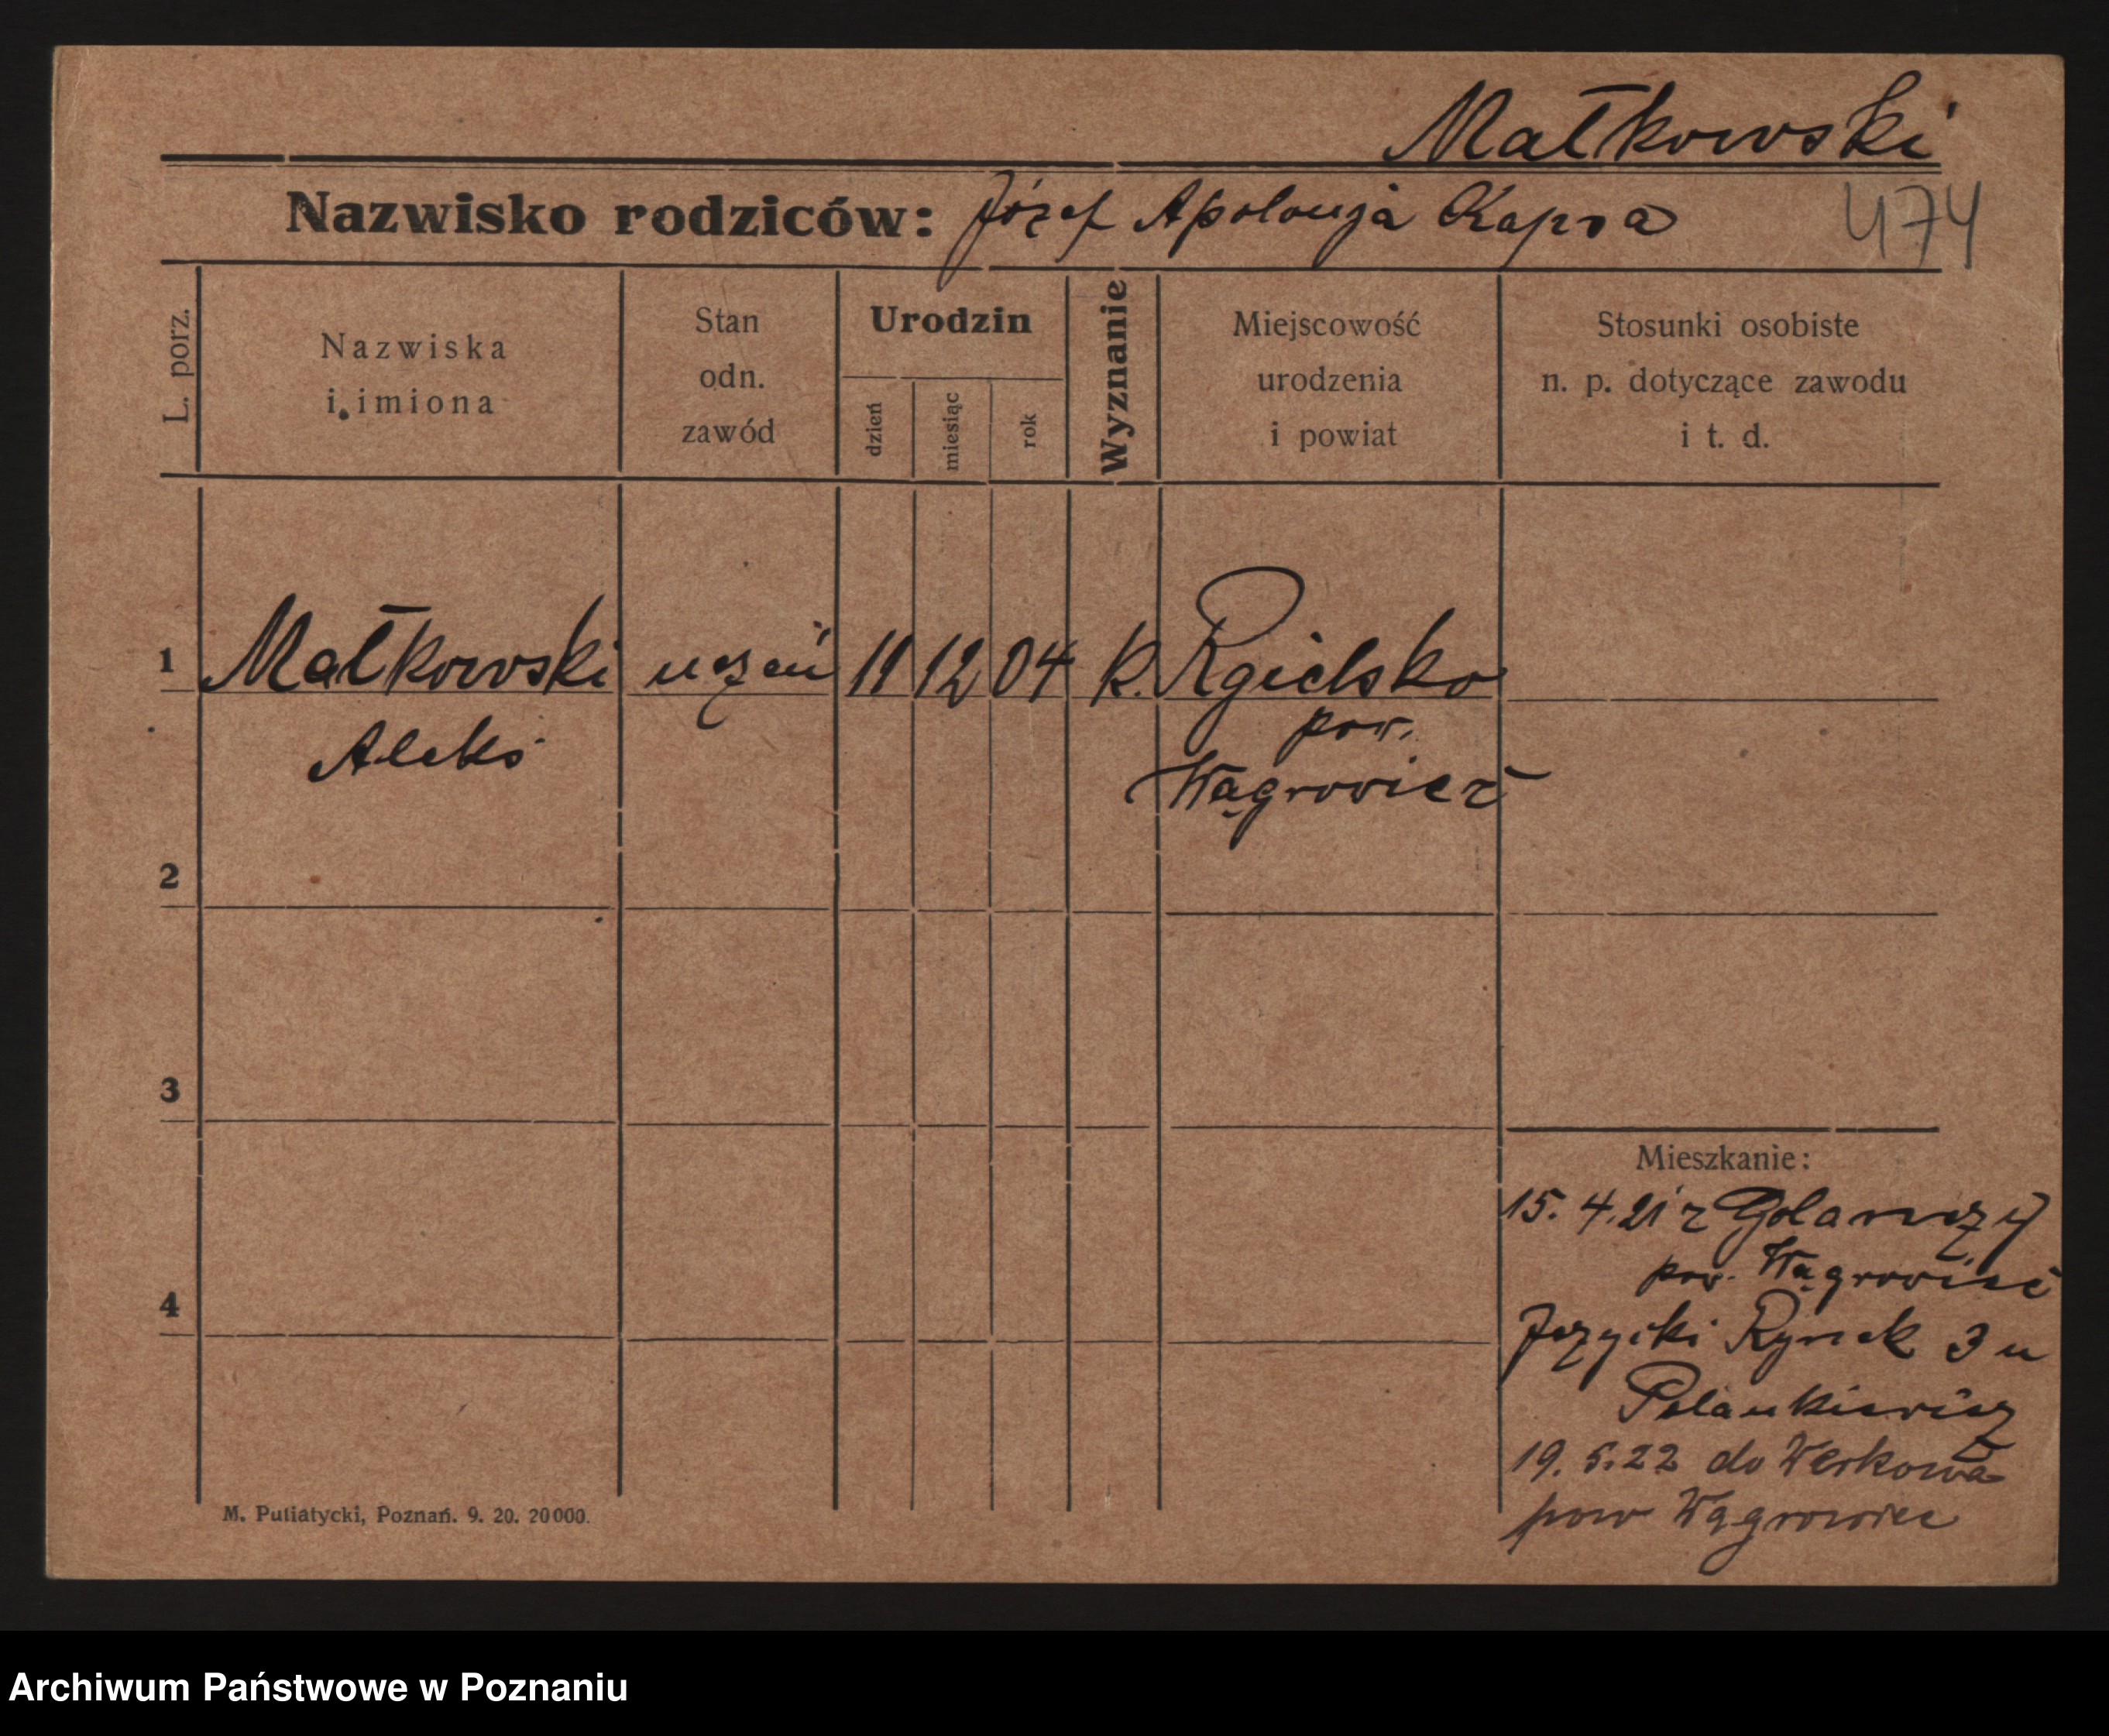 Małkowski
Nazwisko rodziców: Józef Apolonja Kapsa
474
L. porz.
Nazwiska
i imiona
Stan
odn.
zawód
Urodzin
dzień
miesiąc
rok
Wyznanie
Miejscowość
urodzenia
i powiat
Stosunki osobiste
n. p. dotyczące zawodu
i t. d.
1 Małkowski uczeń 11 12 04 k. Rgielsko
Aleks pow.
Wągrowiec
2
3
4
Mieszkanie:
15. 4. 21 z Gołańczy
pow. Wągrowiec
Jeżycki Rynek 3 u
19. 5. 22 do Werkowa
pow Wągrowiec
M. Putiatycki, Poznań. 9. 20. 20000.
Archiwum Państwowe w Poznaniu